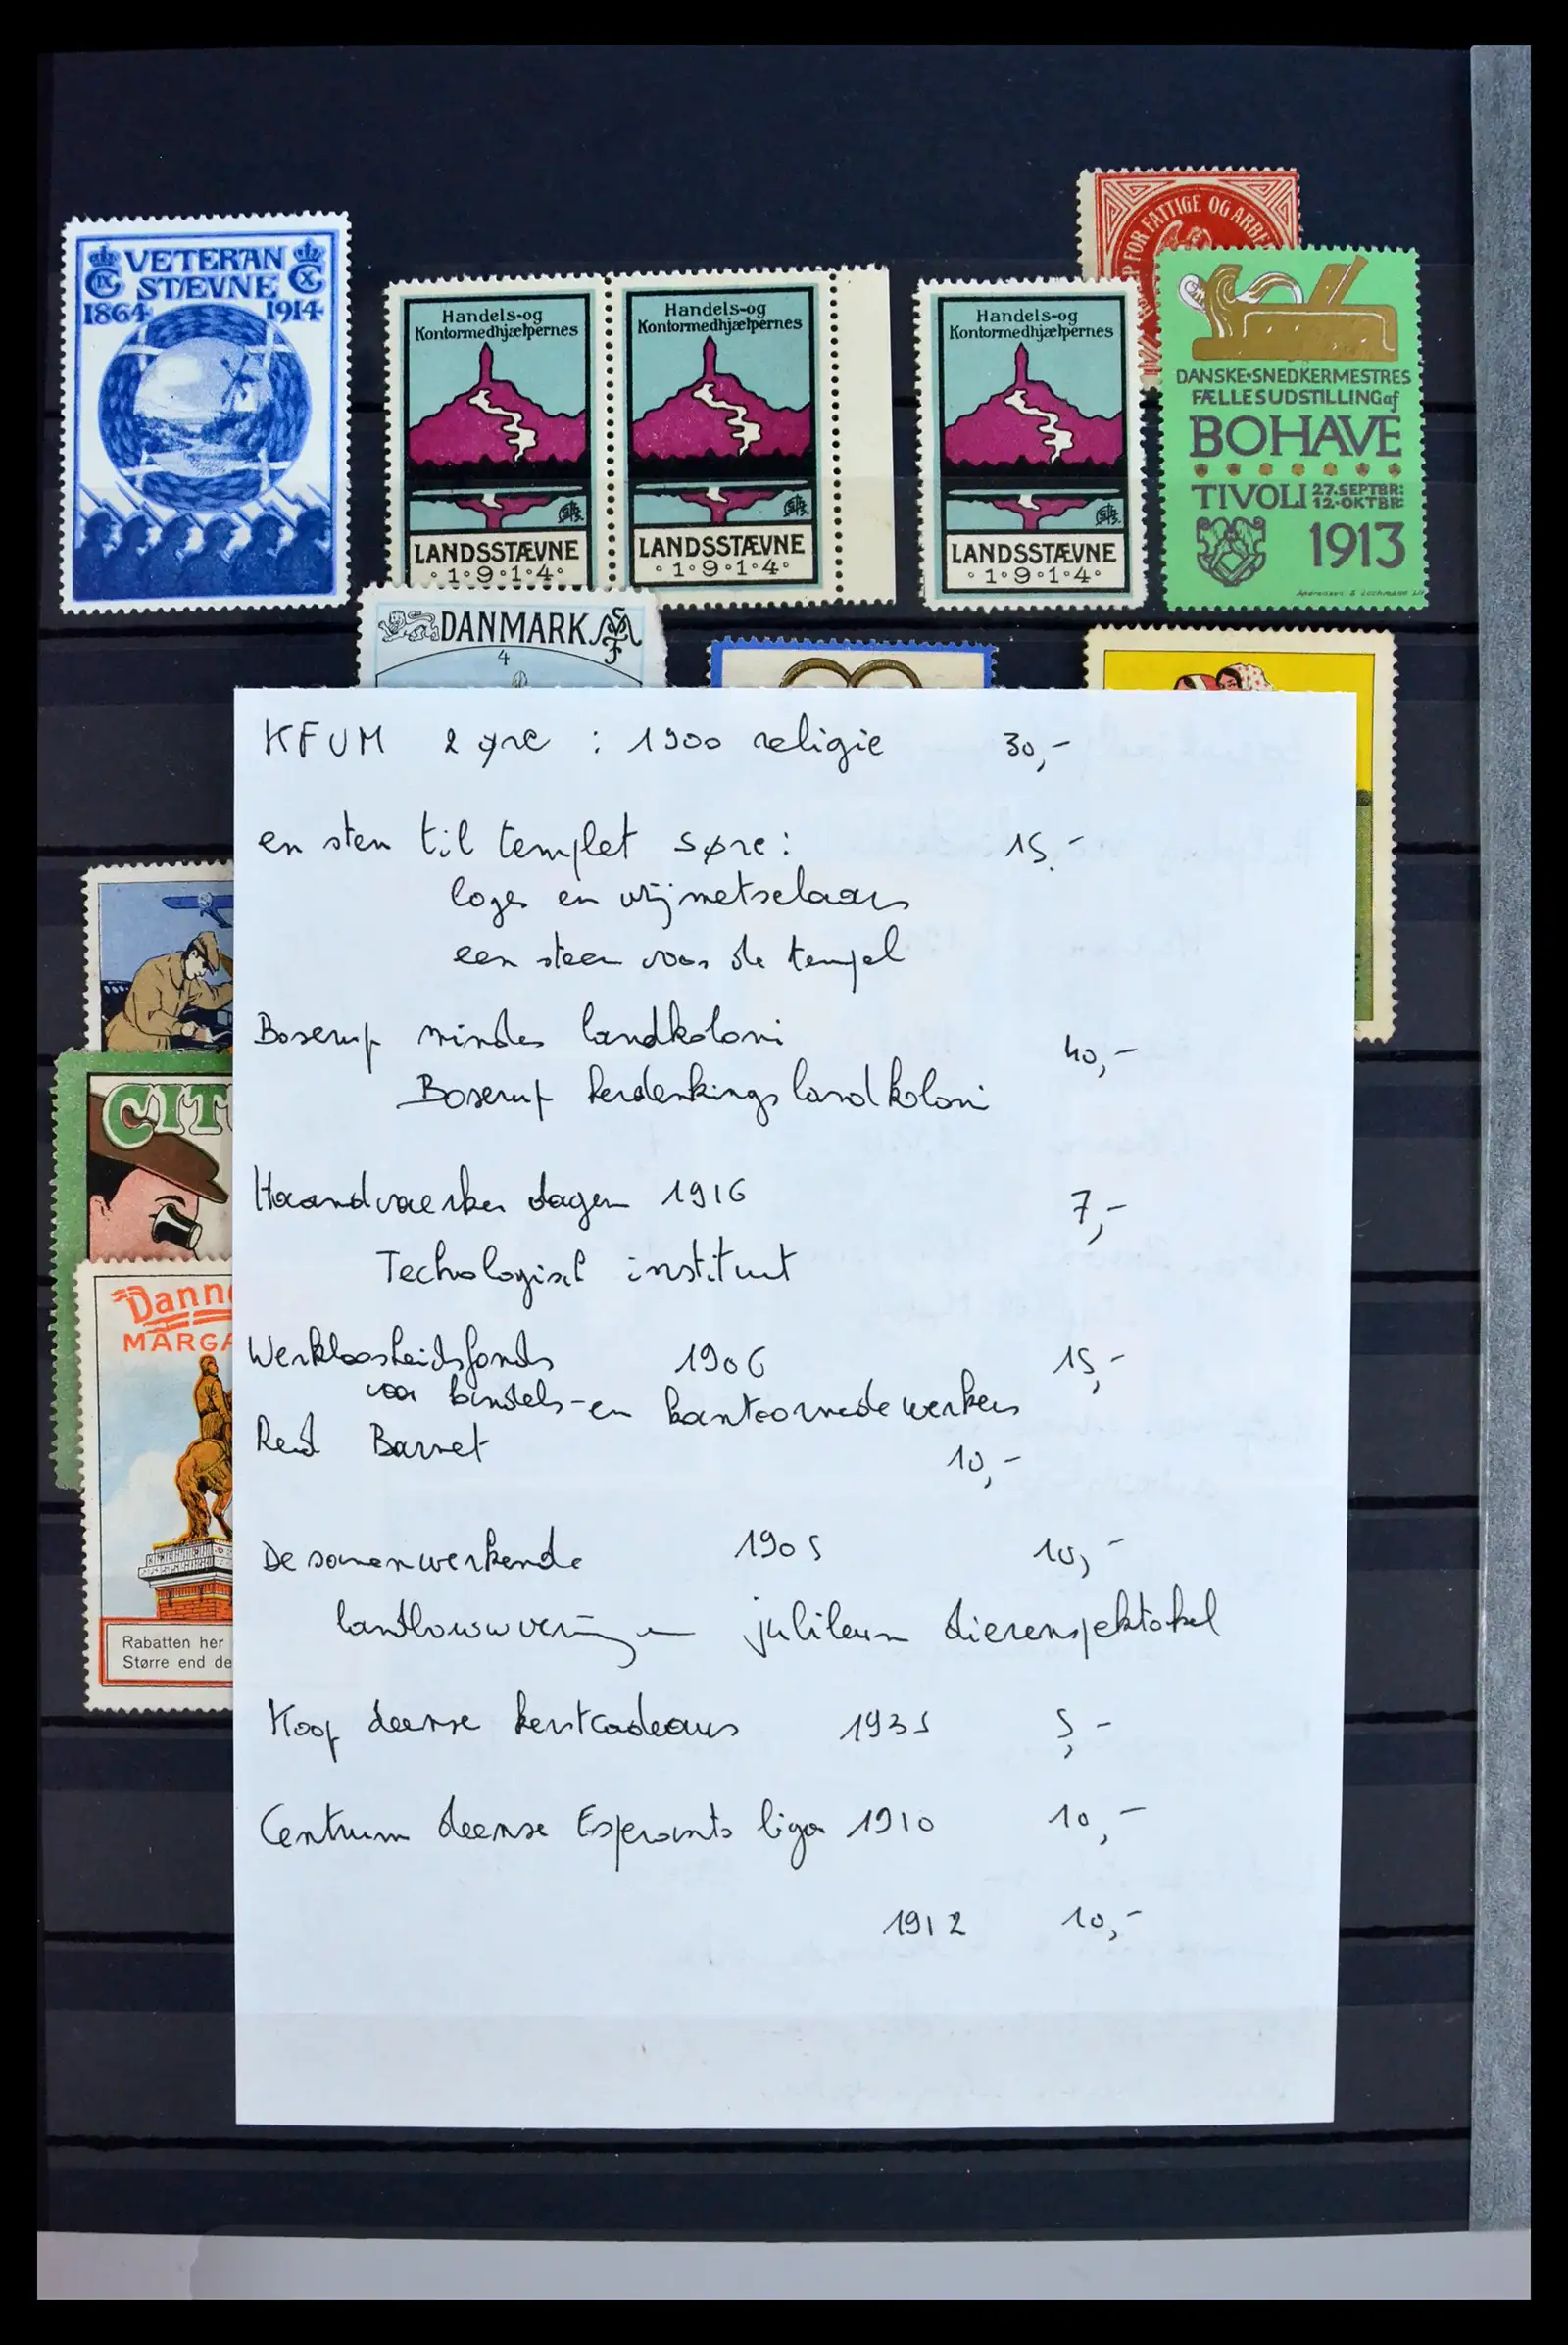 VETERAN
STÆVNE
1864 1914
Handels-og
Kontormedhjælpernes
LANDSSTÆVNE
1914
Handels-og
Kontormedhjælpernes
LANDSSTÆVNE
1914
Handels-og
Kontormedhjælpernes
LANDSSTÆVNE
1914
FOR FATTIGE OG ARBE
DANSKE·SNEDKERMESTRES
FÆLLESUDSTILLING af
BOHAVE
TIVOLI 27.SEPTBR:
12.OKTBR:
1913
DANMARK
4
CIT
Dann
MARGA
Rabatten her
Større end de
KFUM 2 øre : 1900 religie 30,-
en sten til templet 5øre: 15.-
loges en vrijmetselaars
een steen voor de tempel
Boserup mindes landkoloni 40,-
Boserup herdenkings landkoloni
Haandvaerker dagen 1916 7,-
Technologisk instituut
Werkloosheidsfonds 1906 15,-
voor handels-en kantoormedewerkers
Red Barnet 10,-
De samenwerkende 1905 10,-
landbouwverenigingen jubileum dierenspektakel
Koop deense kerstcadeaus 1935 5,-
Centrum deense Esperanto liga 1910 10,-
1912 10,-